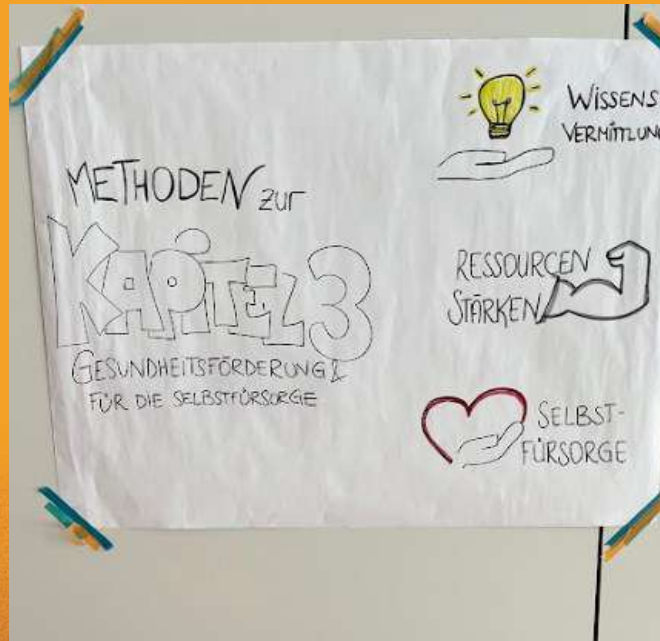 METHODEN zur
KAPITEL 3
GESUNDHEITSFÖRDERUNG &
FÜR DIE SELBSTFÜRSORGE
WISSENS
VERMITTLUNG
RESSOURCEN
STÄRKEN
SELBST-
FÜRSORGE